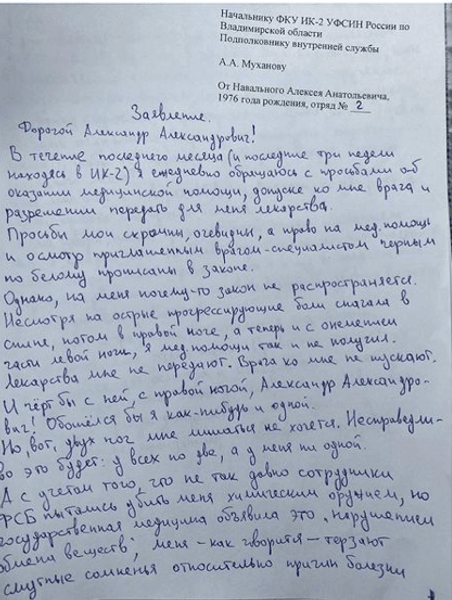 Начальнику ФКУ ИК-2 УФСИН России по
Владимирской области
Подполковнику внутренней службы
А.А. Муханову
От Навального Алексея Анатольевича,
1976 года рождения, отряд № 2
Заявление.
Дорогой Александр Александрович!
В течение последнего месяца (и последние три недели
находясь в ИК-2) я ежедневно обращаюсь с просьбами об
оказании медицинской помощи, допуске ко мне врача и
разрешении передать для меня лекарства.
Просьбы мои скромны, очевидны, а право на мед.помощь
и осмотр приглашенным врагом-специалистом черным
по белому прописаны в законе.
Однако, на меня почему-то закон не распространяется.
Несмотря на острые прогрессирующие боли сначала в
спине, потом в правой ноге, а теперь и с онемением
части левой ноги, я мед.помощи так и не получил.
Лекарства мне не передают. Врача ко мне не пускают.
И чёрт бы с ней, с правой ногой, Александр Александро-
вич! Обошёлся бы я как-нибудь и одной.
Но, вот, двух ног мне лишаться не хочется. Несправедли-
во это будет: у всех по две, а у меня ни одной.
А с учетом того, что не так давно сотрудники
ФСБ пытались убить меня химическим оружием, но
государственная медицина объявила это "нарушением
обмена веществ", меня - как говорится - терзают
смутные сомненья относительно причин болезни